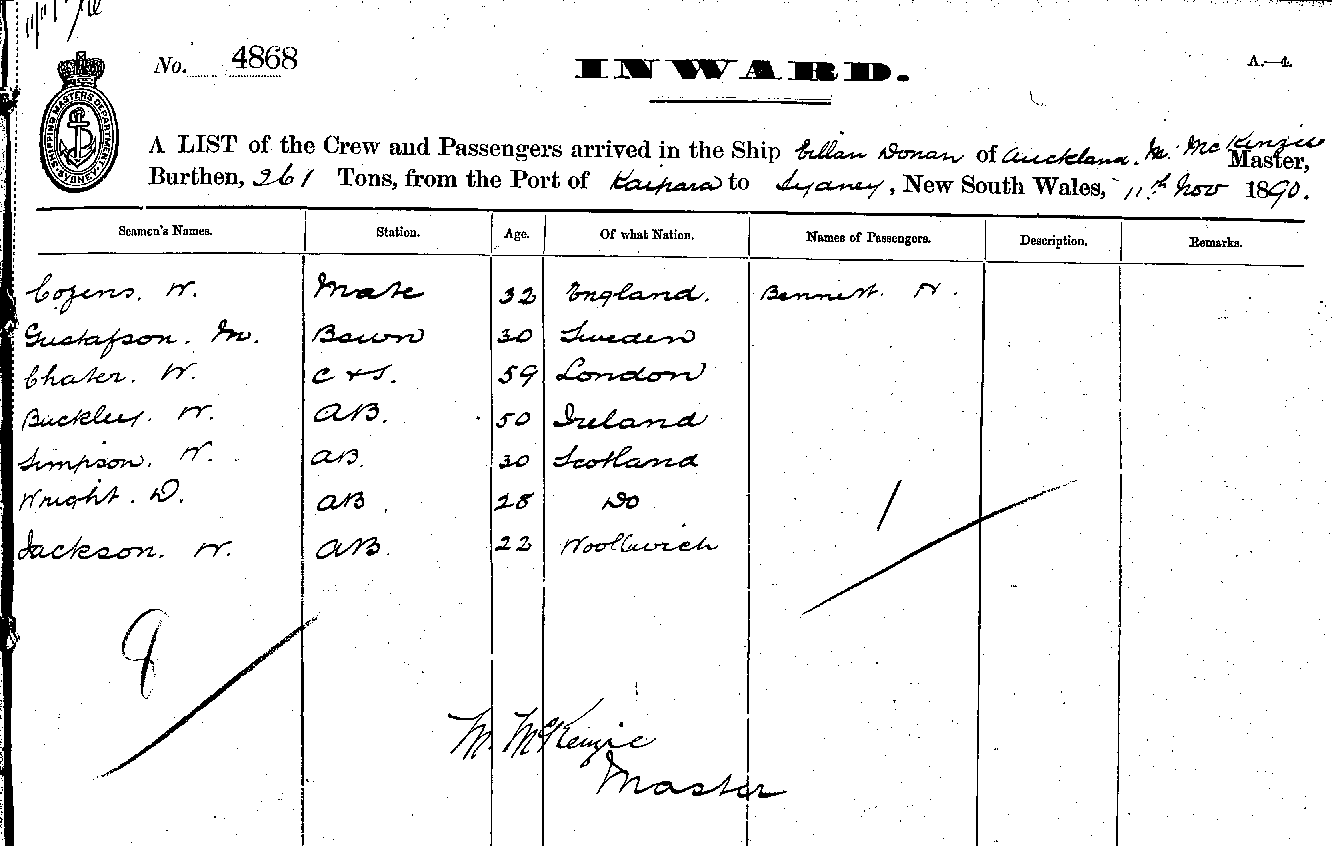 No. 4868
INWARD.
A.—4.
SHIPPING MASTERS DEPARTMENT SYDNEY
A LIST of the Crew and Passengers arrived in the Ship Eillan Donan of Auckland. M. McKenzie Master,
Burthen, 261 Tons, from the Port of Kaipara to Sydney, New South Wales, 11th Nov 1890.
Seamen's Names. Station. Age. Of what Nation. Names of Passengers. Description. Remarks.
Cozens. W. Mate 32 England. Bennett. W.
Gustafson. M. Boswn 30 Sweden
Chater. W. C & S. 59 London
Buckley. W. AB. 50 Ireland
Simpson. W. AB. 30 Scotland
Wright. D. AB. 28 Do
Jackson. W. AB. 22 Woolwich
1
M. McKenzie
Master